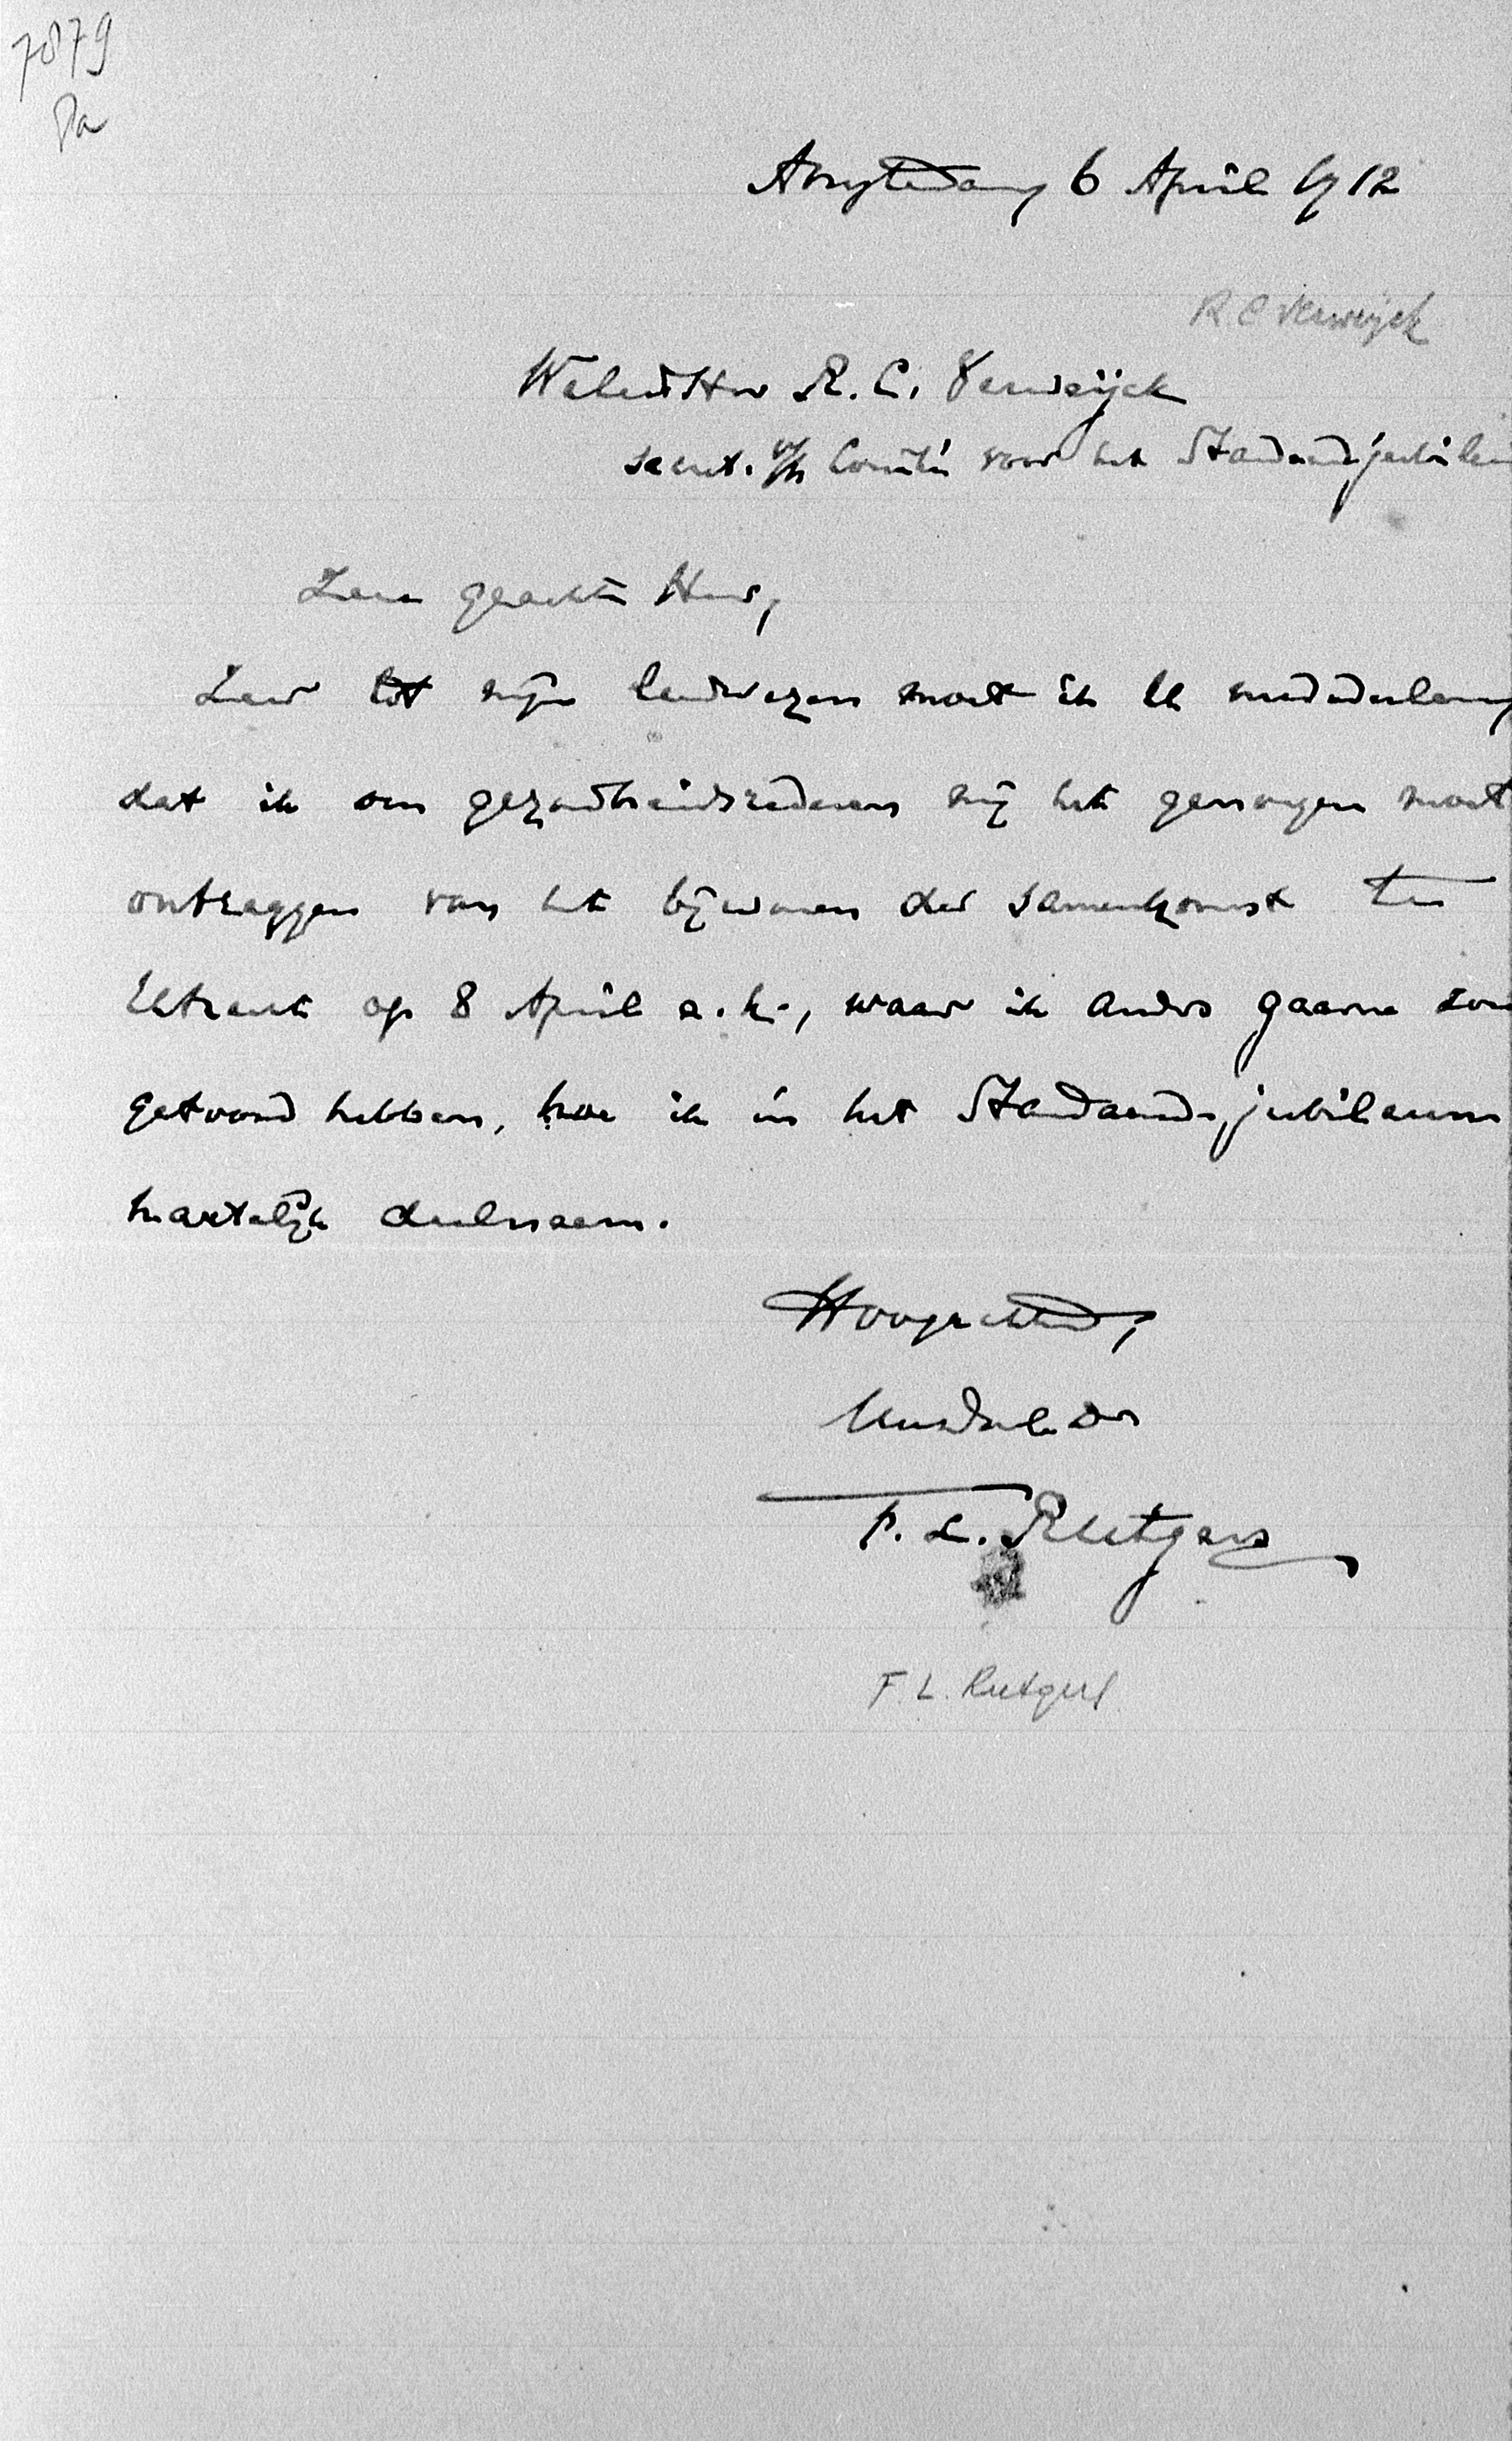 7879
Da
Amsterdam, 6 April 1912
R C Verweijck
WelEdHr R. C. Verweijck
secret. v/h Comité voor het Standaardjubileum
Zeer geachte Heer,
Zeer tot mijn leedwezen moet ik U mededeelen,
dat ik om gezondheidsredenen mij het genoegen moet
ontzeggen van het bijwonen der samenkomst te
Utrecht op 8 April a.k., waar ik anders gaarne zou
getoond hebben, hoe ik in het Standaard-jubileum
hartelijk deelneem.
Hoogachtend,
Uw dw. dr
F. L. Rutgers
F. L. Rutgers